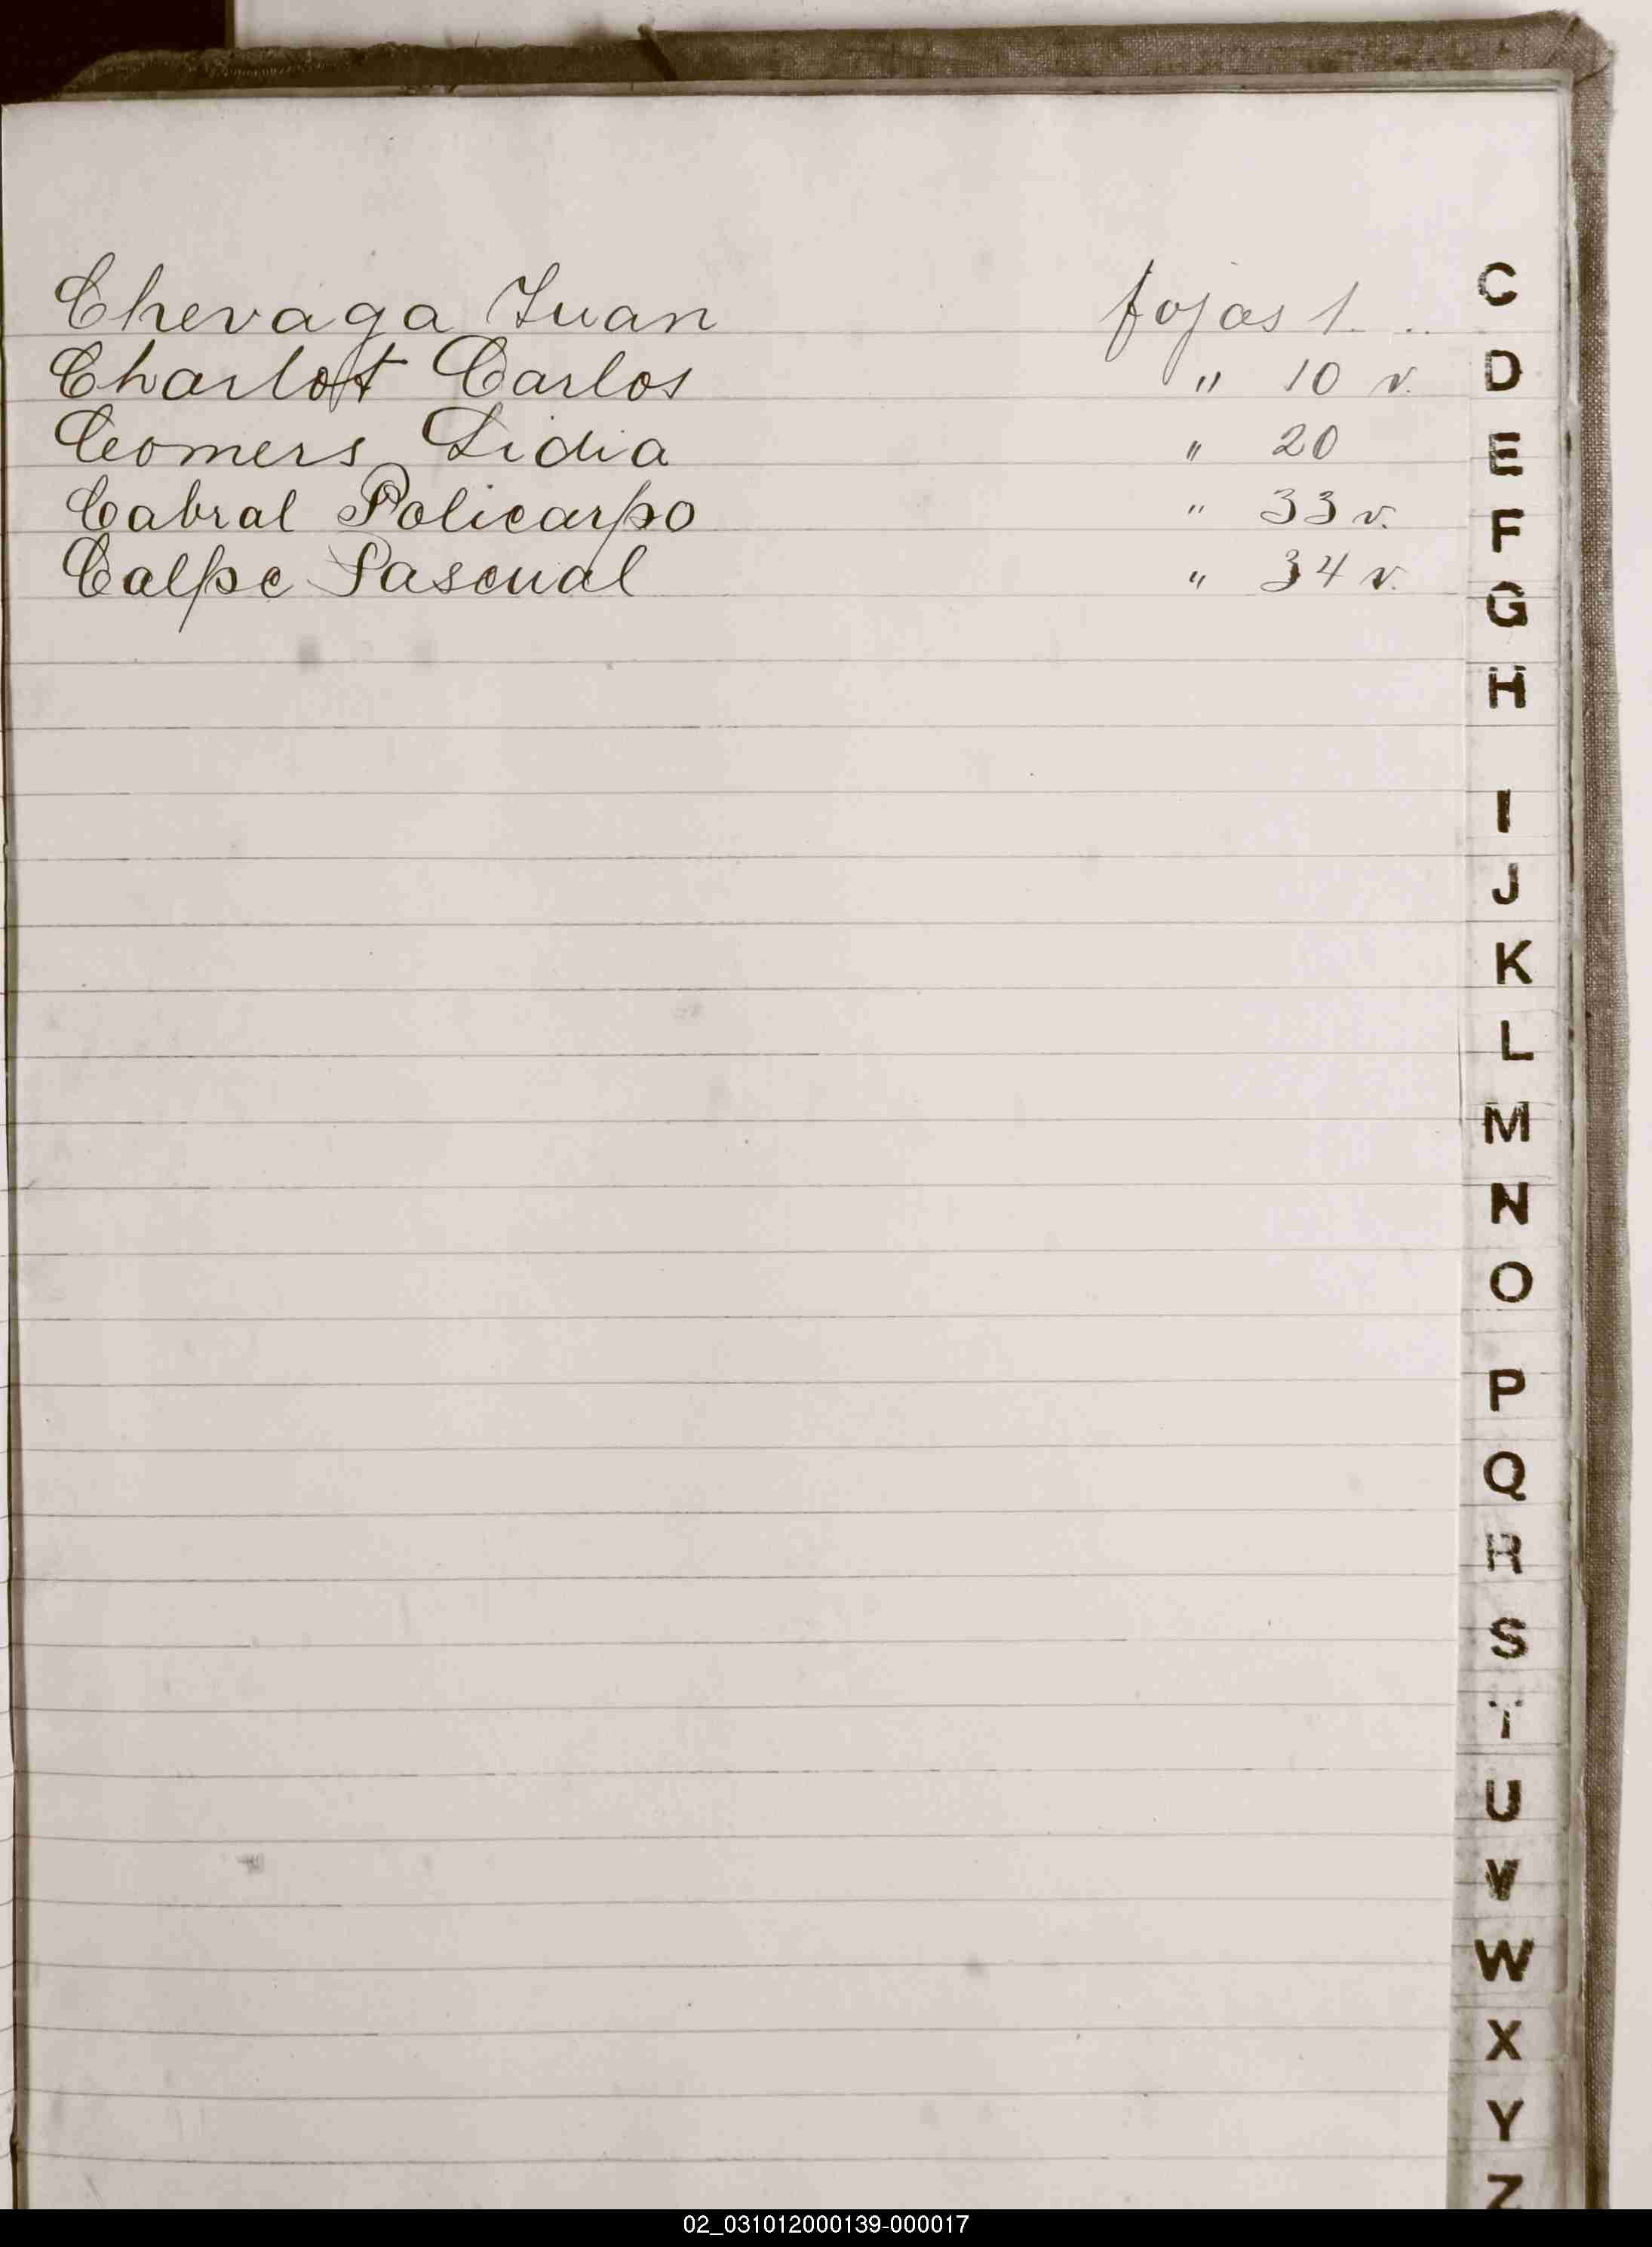 Chevaga Juan fojas 1. ..
Charlott Carlos " 10 v.
Comers Lidia " 20
Cabral Policarpo " 33 v.
Calpe Pascual " 34 v.
C
D
E
F
G
H
I
J
K
L
M
N
O
P
Q
R
S
T
U
V
W
X
Y
Z
02_031012000139-000017